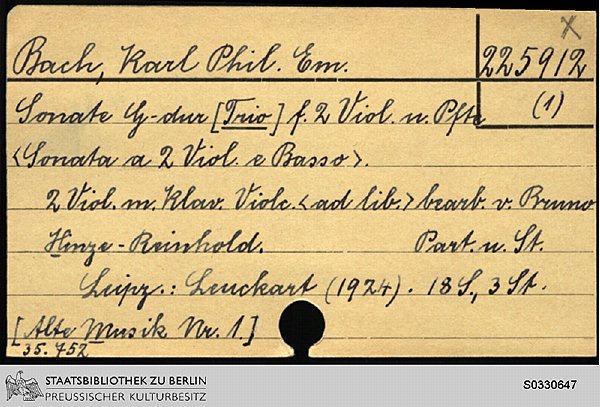 x
Bach, Karl Phil. Em. 225912
Sonate G-dur [Trio] f. 2 Viol. u. Pfte (1)
<Sonata a 2 Viol. e Basso>.
2 Viol. m. Klav. Violc. <ad lib.> bearb. v. Bruno
Hinze-Reinhold. Part. u. St.
Leipz.: Leuckart (1924). 18 S., 3 St.
[Alte Musik Nr. 1.]
35.752
STAATSBIBLIOTHEK ZU BERLIN
PREUSSISCHER KULTURBESITZ
S0330647